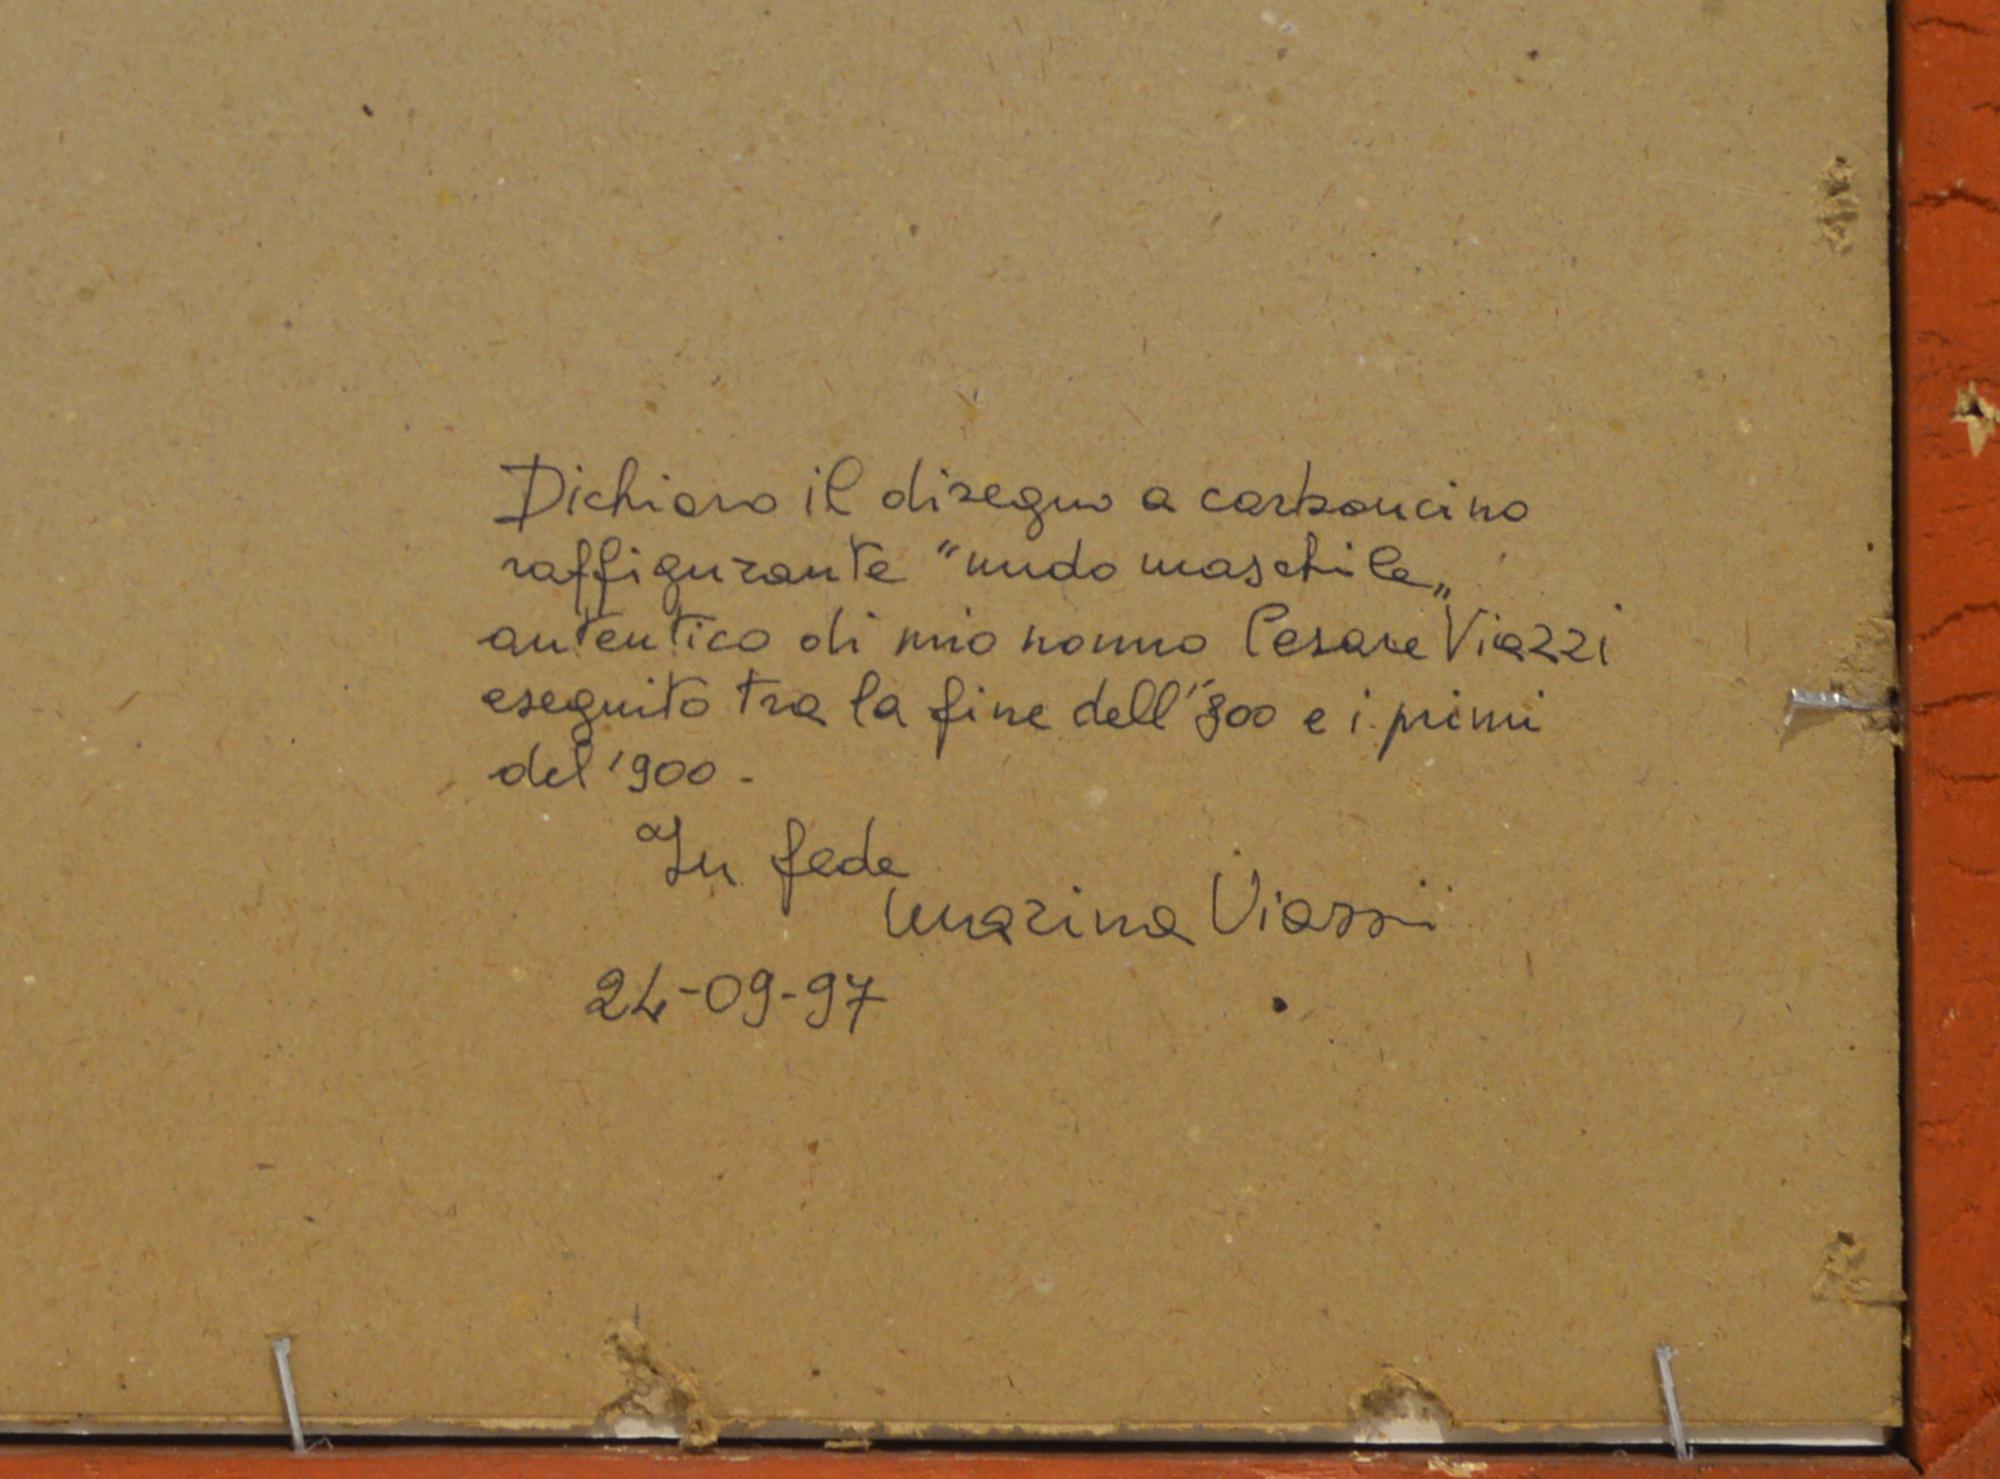 Dichiaro il disegno a carboncino
raffigurante "nudo maschile„
autentico di mio nonno Cesare Viazzi
eseguito tra la fine dell'800 e i primi
del '900 -
In fede
Marina Viazzi
24-09-97